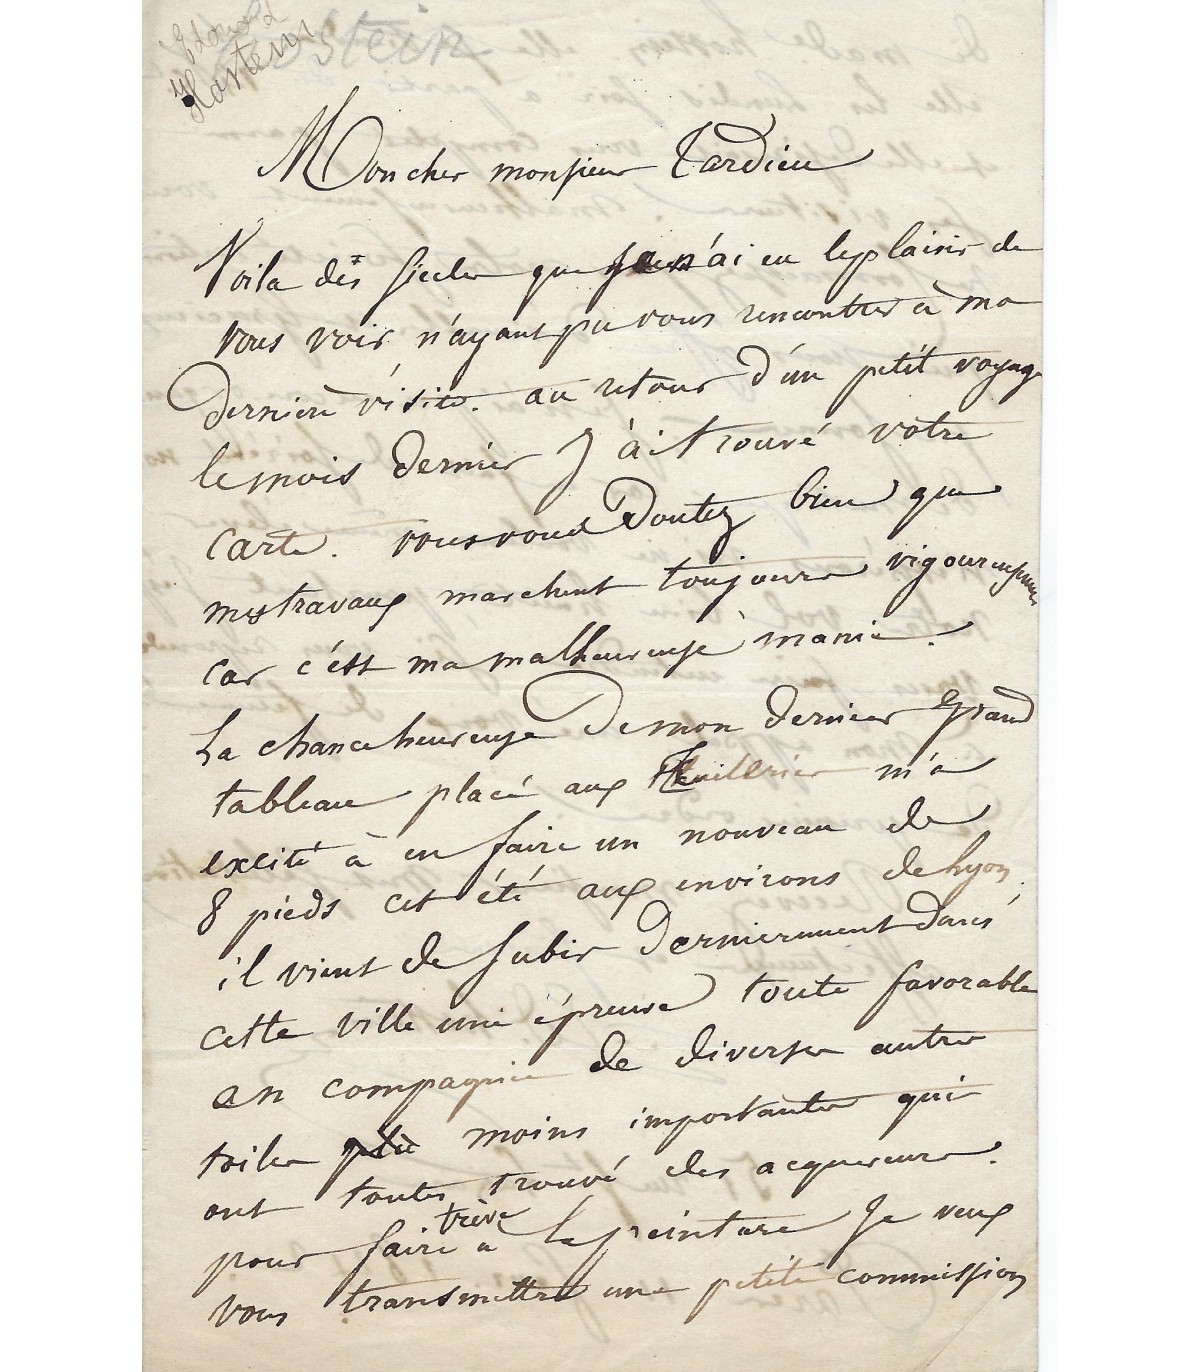 Edouard
Hostein
Hostein
Mon cher monsieur Tardieu
Voila des siecles que je n'ai eu le plaisir de
vous voir n'ayant pu vous rencontrer à ma
derniere visite. au retour d'un petit voyage
le mois dernier j'ai trouvé votre
carte. vous vous doutez bien que
mes travaux marchent toujours vigoureusement
car c'est ma malheureuse manie.
La chance heureuse de mon dernier grand
tableau placé aux Tuileries m'a
excité à en faire un nouveau de
8 pieds cet été aux environs de Lyon.
il vient de subir dernierement dans
cette ville une épreuve toute favorable
en compagnie de diverses autres
toiles moins importantes qui
ont toutes trouvé des acquereurs.
pour faire trève à la peinture Je veux
vous transmettre une petite commission